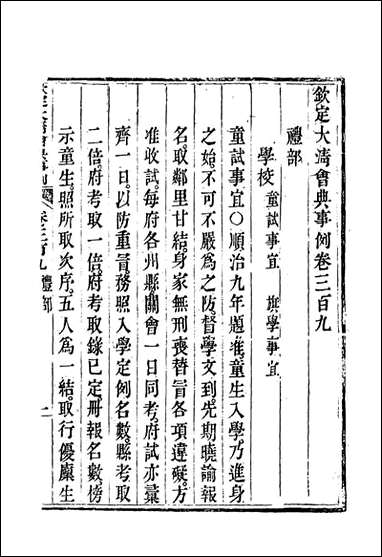 欽定大清會典事例卷三百九
禮部
學校 童試事宜 旗學事宜
童試事宜〇順治九年題准童生入學乃進身
之始不可不嚴爲之防督學文到先期曉諭報
名取鄰里甘結身家無刑喪替冒各項違礙方
准收試每府各州縣關會一日同考府試亦彙
齊一日以防重冒務照入學定例名數縣考取
二倍府考取一倍府考取錄已定冊報名數榜
示童生照所取次序五人爲一結取行優廩生
卷三百九 禮部 一